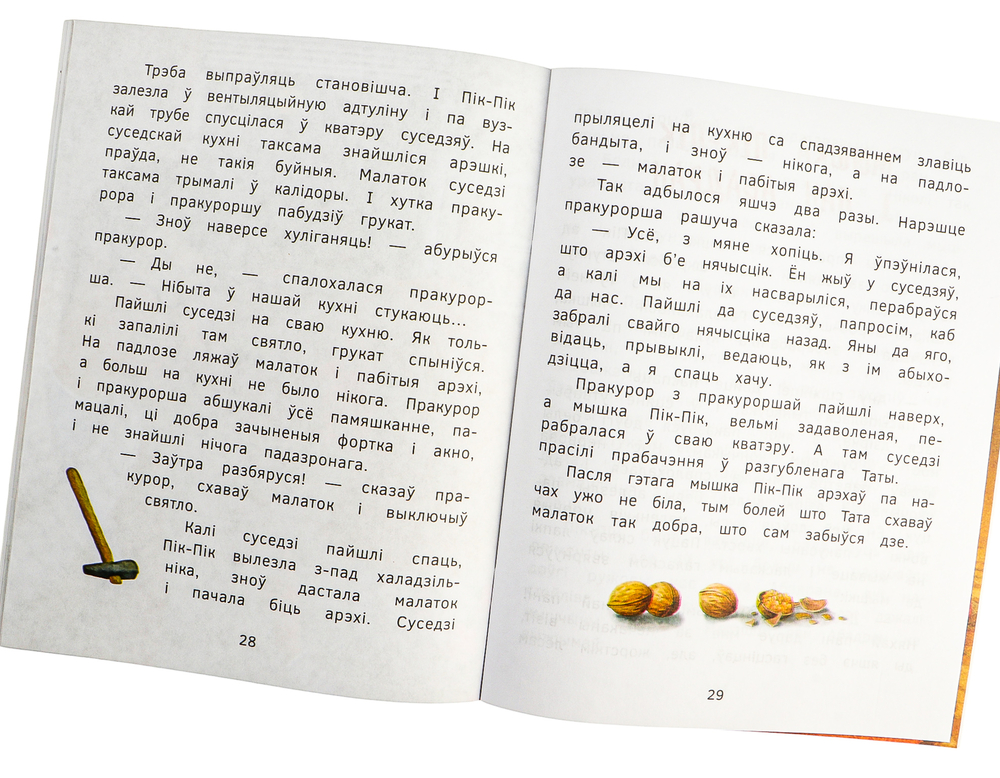 Трэба выпраўляць становішча. І Пік-Пік
залезла ў вентыляцыйную адтуліну і па вуз-
кай трубе спусцілася ў кватэру суседзяў. На
суседскай кухні таксама знайшліся арэшкі,
праўда, не такія буйныя. Малаток суседзі
таксама трымалі ў калідоры. І хутка праку-
рора і пракуроршу пабудзіў грукат.
— Зноў наверсе хуліганяць! — абурыўся
пракурор.
— Ды не, — спалохалася пракурор-
ша. — Нібыта ў нашай кухні стукаюць...
Пайшлі суседзі на сваю кухню. Як толь-
кі запалілі там святло, грукат спыніўся.
На падлозе ляжаў малаток і пабітыя арэхі,
а больш на кухні не было нікога. Пракурор
і пракурорша абшукалі ўсё памяшканне, па-
мацалі, ці добра зачыненыя фортка і акно,
і не знайшлі нічога падазронага.
— Заўтра разбяруся! — сказаў пра-
курор, схаваў малаток і выключыў
святло.
Калі суседзі пайшлі спаць,
Пік-Пік вылезла з-пад халадзіль-
ніка, зноў дастала малаток
і пачала біць арэхі. Суседзі
28
прыляцелі на кухню са спадзяваннем злавіць
бандыта, і зноў — нікога, а на падло-
зе — малаток і пабітыя арэхі.
Так адбылося яшчэ два разы. Нарэшце
пракурорша рашуча сказала:
— Усё, з мяне хопіць. Я ўпэўнілася,
што арэхі б'е нячысцік. Ён жыў у суседзяў,
а калі мы на іх насварыліся, перабраўся
да нас. Пайшлі да суседзяў, папросім, каб
забралі свайго нячысціка назад. Яны да яго,
відаць, прывыклі, ведаюць, як з ім абыхо-
дзіцца, а я спаць хачу.
Пракурор з пракуроршай пайшлі наверх,
а мышка Пік-Пік, вельмі задаволеная, пе-
рабралася ў сваю кватэру. А там суседзі
прасілі прабачэння ў разгубленага Таты.
Пасля гэтага мышка Пік-Пік арэхаў па на-
чах ужо не біла, тым болей што Тата схаваў
малаток так добра, што сам забыўся дзе.
29